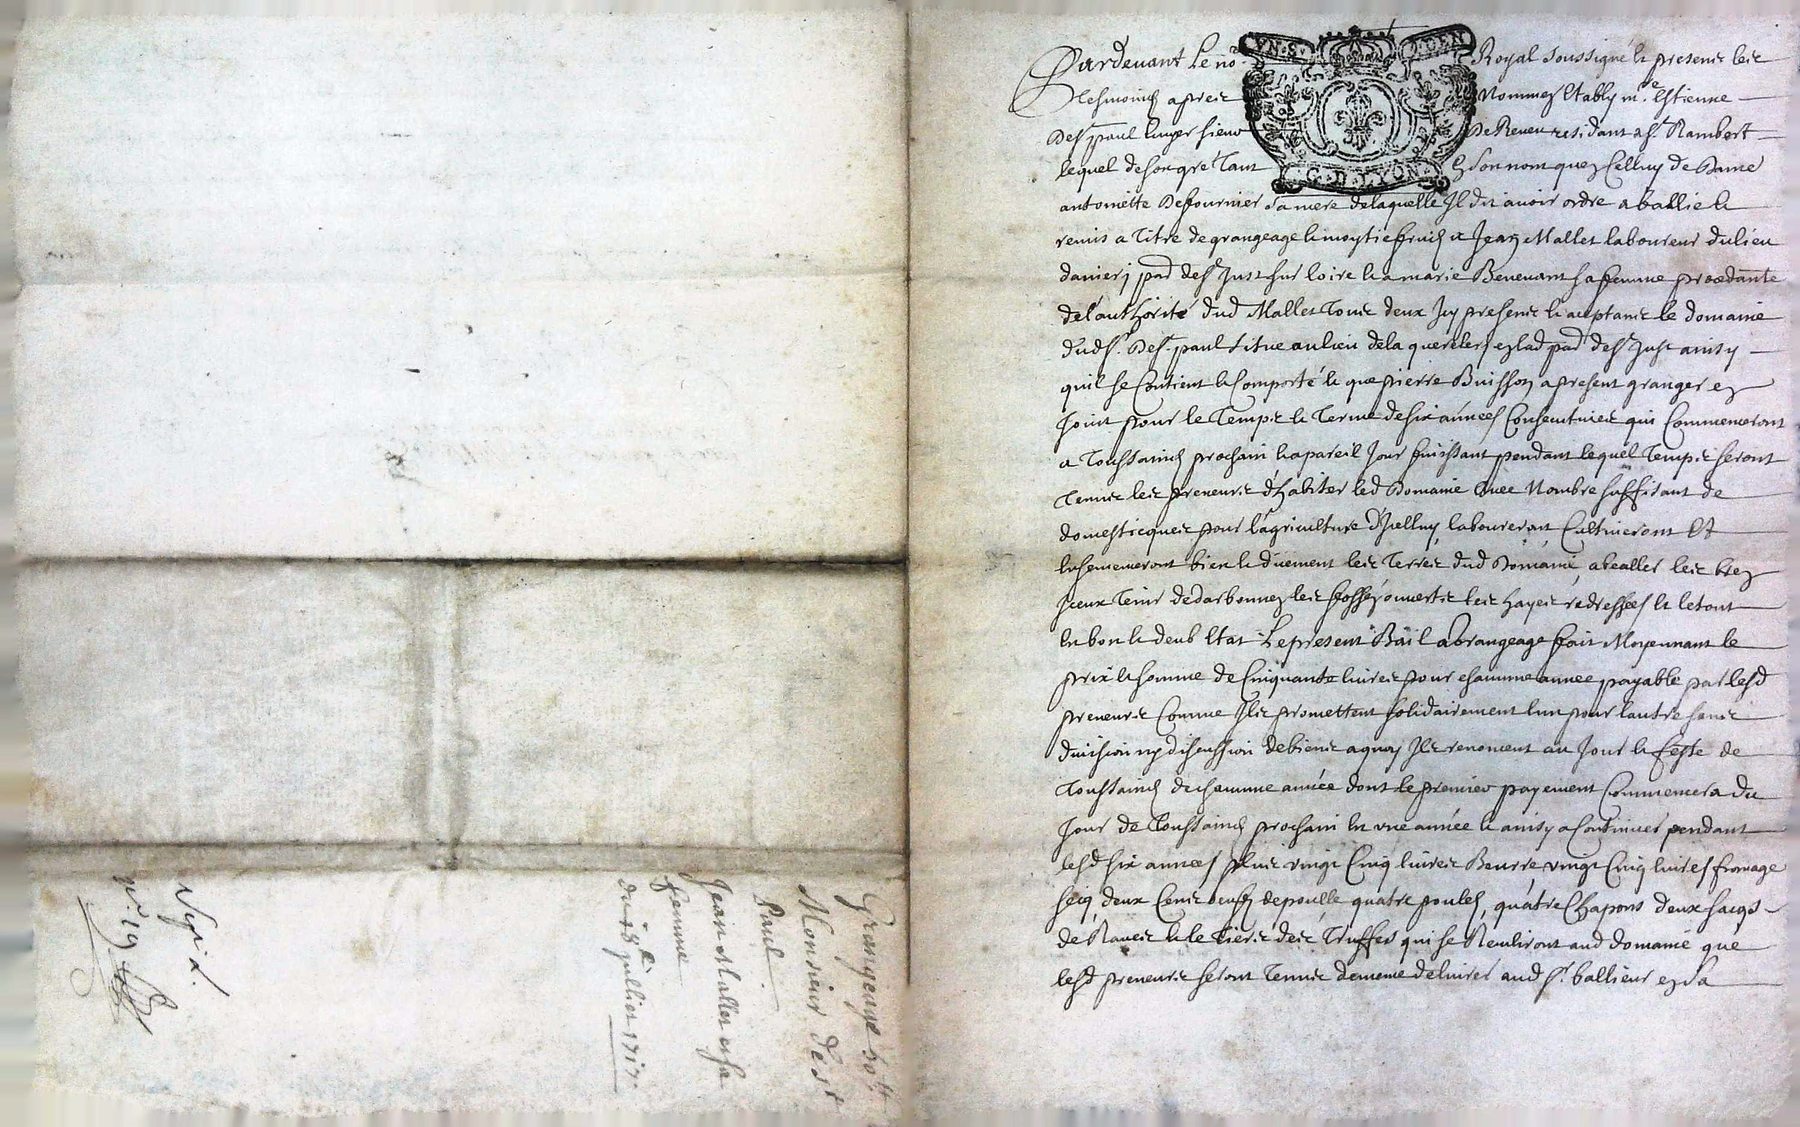 Grangeage 50 ₶
Monsieur de St
Paul.
Jean Mallet et sa
femme
du 18e juillet 1717.
Expié.
nº 19
UN S. D. DEN
G. D. LYON
Pardevant le no.re Royal soussigné et presents les
tesmoins apres nommez estably m.re Estienne
de St paul luyer sieur de Reveu residant a St Rambert
lequel de son gre tant en son nom que en celluy de Dame
antoinette Defournier sa mere de laquelle Il dit avoir ordre a ballié et
remis a titre de grangeage et moytié fruits a Jean Mallet laboureur du lieu
danierj par. de St Just sur loire et a marie Benevant sa femme procedante
de l'authorité dud Mallet tous deux Icy presents et acceptants le domaine
dud Sr. de St. paul situé au lieu de la querelerj en lad par. de St Just ainsy
qu'il se Contient et Comporte et que pierre Buisson a present granger en
Jouit pour le temps et terme de six années Consecutives qui Commenceront
a toussaincts prochain et a pareil Jour finissant pendant lequel temps seront
tenus les preneurs d'habiter led Domaine avec Nombre suffisant de
domesticques pour l'agriculture d'Icelluy, laboureront Cultiveront Et
Ensemenceront bien et duement les Terres dud Domaine, a bealler les prez
Iceux tenir dedarbonnez les fossez ouverts les hayes redressées et le tout
en bon et deub Etat Le present Bail a Grangeage fait Moyennant le
prix et somme de Cinquante livres pour chacunne année payable par lesd
preneurs Comme Ils promettent solidairement l'un pour l'autre sans
division ny discussion de biens a quoy Ils renoncent au Jour et feste de
Toussaincts de chacunne année dont le premier payement Commencera du
Jour de Toussaincts prochain en une année et ainsy a Continuer pendant
lesd six années plus vingt Cinq livres Beurre vingt Cinq livres fromage
secq deux Cents oeufs de poulle quatre poules, quatre Chapons deux sacqs
de Raves et le tiers des Truffes qui se Reculiront aud domaine que
lesd preneurs seront tenus de meme delivrer aud Sr. ballieur en sa